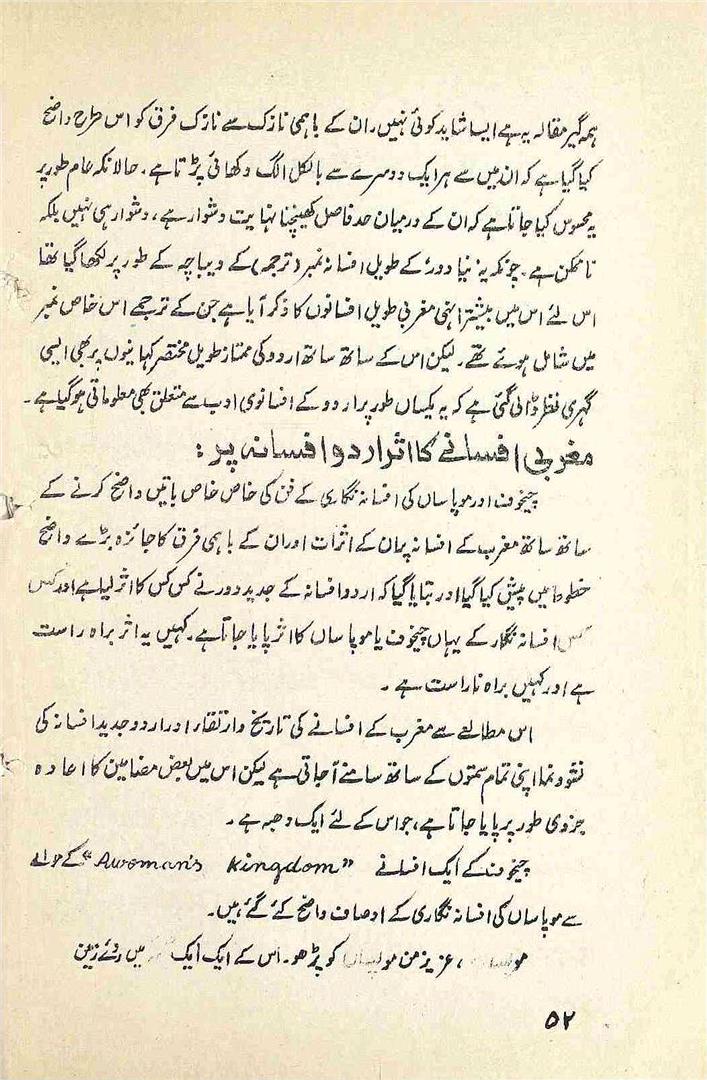 ہمہ گیر مقالہ یہ ہے ایسا شاید کوئی نہیں۔ ان کے باہمی نازک سے نازک فرق کو اس طرح واضح
کیا گیا ہے کہ ان میں سے ہر ایک دوسرے سے بالکل الگ دکھائی پڑتا ہے۔ حالانکہ عام طور پر
یہ محسوس کیا جاتا ہے کہ ان کے درمیان حد فاصل کھینچنا نہایت دشوار ہے، دشوار ہی نہیں بلکہ
ناممکن ہے۔ چونکہ یہ نیا دور کے طویل افسانہ نمبر (ترجمہ) کے دیباچہ کے طور پر لکھا گیا تھا
اس لئے اس میں بیشتر انہی مغربی طویل افسانوں کا ذکر آیا ہے جن کے ترجمے اس خاص نمبر
میں شامل ہوئے تھے۔ لیکن اس کے ساتھ ساتھ اردو کی ممتاز طویل مختصر کہانیوں پر بھی ایسی
گہری نظر ڈالی گئی ہے کہ یہ یکساں طور پر اردو کے افسانوی ادب سے متعلق بھی معلوماتی ہو گیا ہے۔
مغربی افسانے کا اثر اردو افسانہ پر:
چیخوف اور موپاساں کی افسانہ نگاری کے فن کی خاص خاص باتیں واضح کرنے کے
ساتھ ساتھ مغرب کے افسانہ پر ان کے اثرات اور ان کے باہمی فرق کا جائزہ بڑے واضح
خطوط میں پیش کیا گیا اور بتایا گیا کہ اردو افسانہ کے جدید دور نے کس کس کا اثر لیا ہے اور کس
کس افسانہ نگار کے یہاں چیخوف یا موپاساں کا اثر پایا جاتا ہے۔ کہیں یہ اثر براہ راست
ہے اور کہیں براہ ناراست ہے۔
اس مطالعے سے مغرب کے افسانے کی تاریخ وارتقار اور اردو جدید افسانہ کی
نشوونما اپنی تمام سمتوں کے ساتھ سامنے آجاتی ہے لیکن اس میں بعض مضامین کا اعادہ
جزوی طور پر پایا جاتا ہے، جو اس کے لئے ایک وجہ ہے۔
چیخوف کے ایک افسانے "Awoman's Kingdom" کے حوالے
سے موپاساں کی افسانہ نگاری کے اوصاف واضح کئے گئے ہیں۔
، عزیز من موپساں کو پڑھو۔ اس کے ایک ایک میں روئے زمین
۵۲